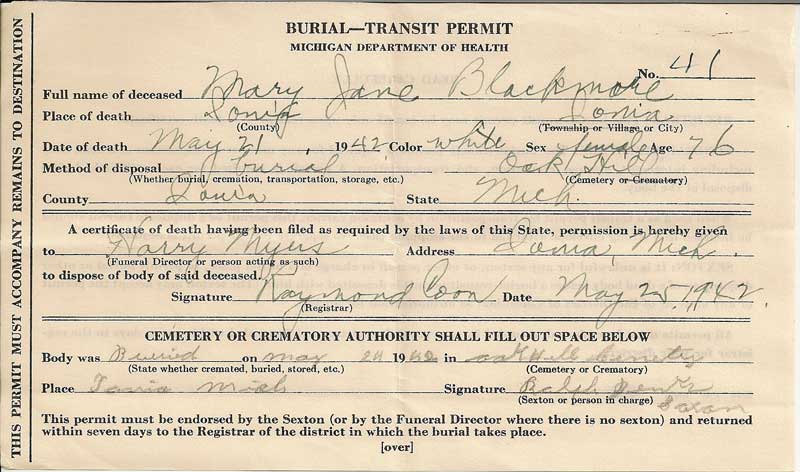 THIS PERMIT MUST ACCOMPANY REMAINS TO DESTINATION
BURIAL—TRANSIT PERMIT
MICHIGAN DEPARTMENT OF HEALTH
No. 41
Full name of deceased Mary Jane Blackmore
Place of death Ionia Ionia
(County) (Township or Village or City)
Date of death May 21, 1942 Color white Sex female Age 76
Method of disposal burial Oak Hill
(Whether burial, cremation, transportation, storage, etc.) (Cemetery or Crematory)
County Ionia State Mich.
A certificate of death having been filed as required by the laws of this State, permission is hereby given
to Harry Myers Address Ionia, Mich.
(Funeral Director or person acting as such)
to dispose of body of said deceased.
Signature Raymond Coon Date May 25, 1942.
(Registrar)
CEMETERY OR CREMATORY AUTHORITY SHALL FILL OUT SPACE BELOW
Body was Buried on May 24 1942 in oak Hill
(State whether cremated, buried, stored, etc.) (Cemetery or Crematory)
Place Ionia Mich Signature Ralph
(Sexton or person in charge)
This permit must be endorsed by the Sexton (or by the Funeral Director where there is no sexton) and returned
within seven days to the Registrar of the district in which the burial takes place.
[over]